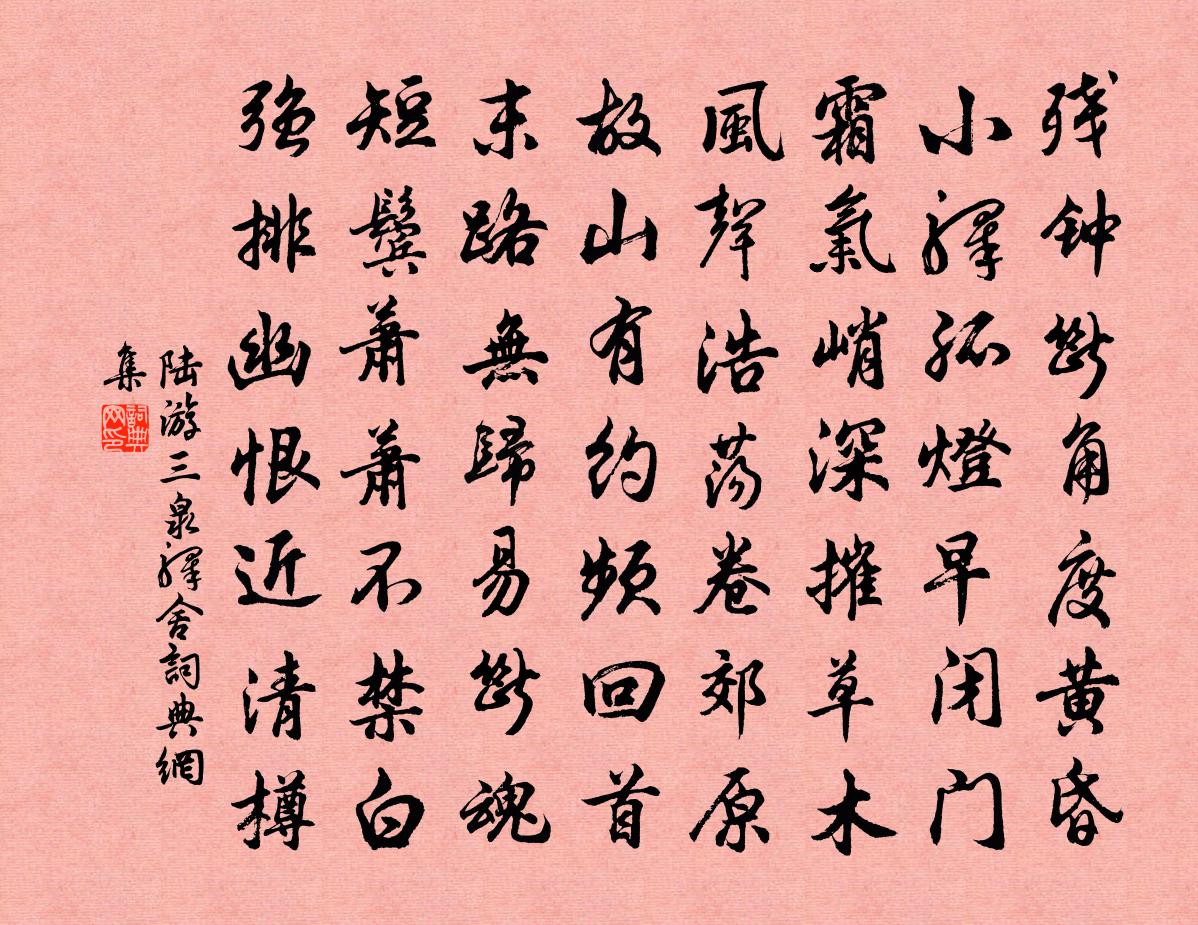 残钟断角度黄昏
小驿孤燈早闭门
霜氣峭深摧草木
風聲浩荡卷郊原
故山有约频回首
末路無歸易断魂
短鬓萧萧不禁白
強排幽恨近清樽
陆游三泉驿舍詞典網
集
詞典网印